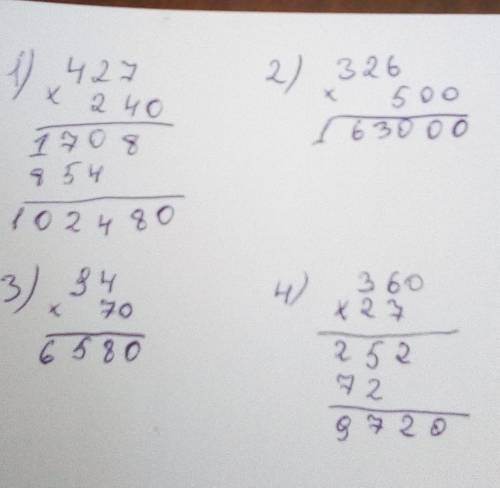 1) 427
× 240
1708
854
102480
2) 326
× 500
163000
3) 94
× 70
6580
4) 360
× 27
252
72
9720